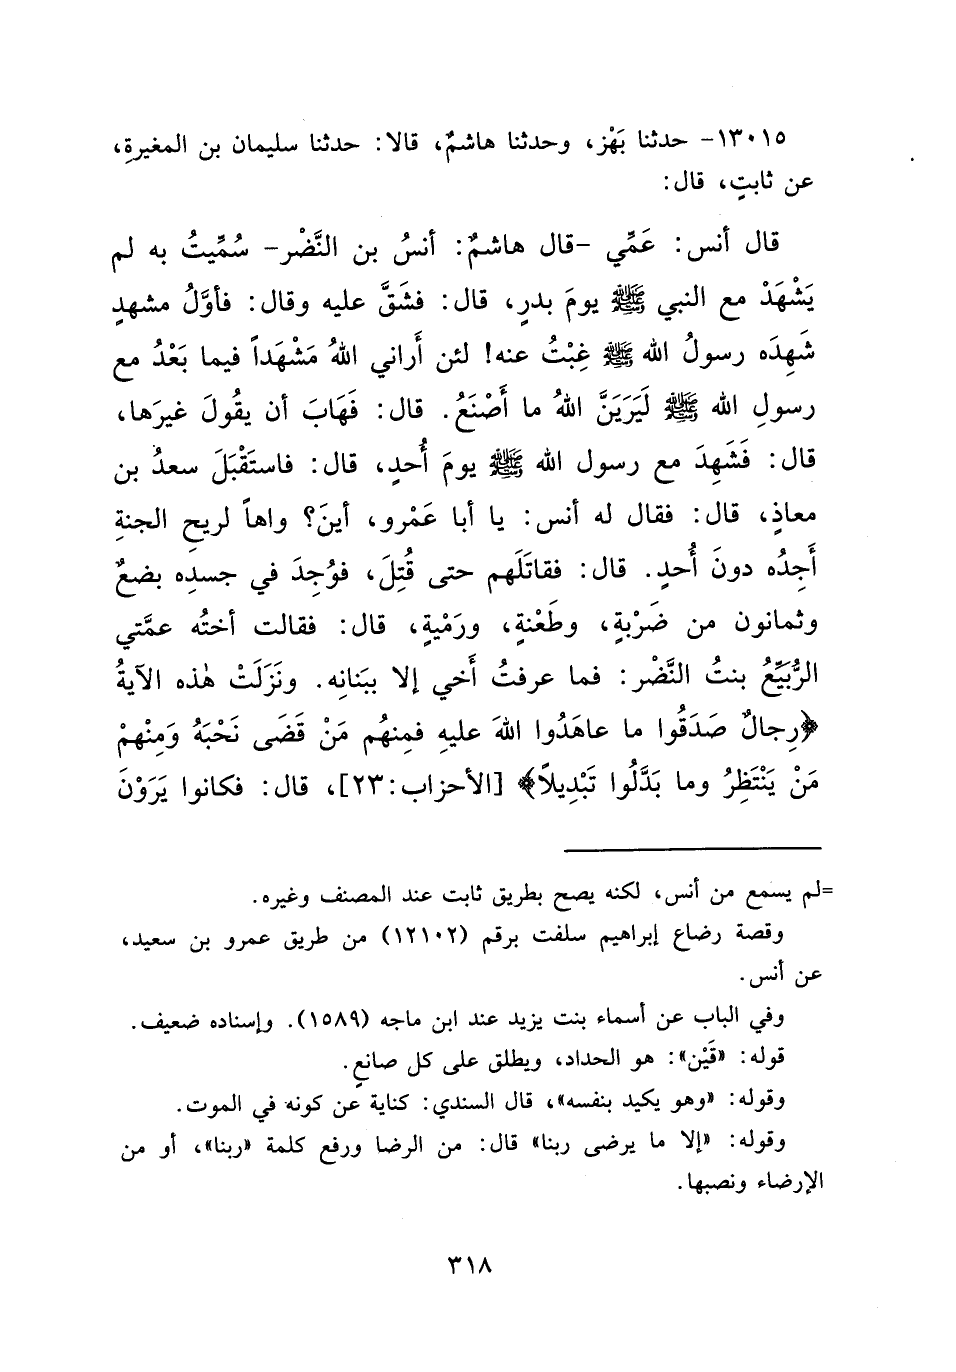 ١٣٠١٥- حدثنا بَهْز، وحدثنا هاشمٌ، قالا: حدثنا سليمان بن المغيرةِ،
عن ثابتٍ، قال:
قال أنس: عَمِّي -قال هاشمٌ: أنسُ بن النَّضْر- سُمِّيتُ به لم
يَشْهَدْ مع النبي ﷺ يومَ بدرٍ، قال: فشَقَّ عليه وقال: فأوَّلُ مشهدٍ
شَهِدَه رسولُ الله ﷺ غِبْتُ عنه! لئن أَراني اللهُ مَشْهَداً فيما بَعْدُ مع
رسولِ الله ﷺ لَيَرَيَنَّ اللهُ ما أَصْنَعُ. قال: فَهَابَ أن يقُولَ غيرَها،
قال: فَشَهِدَ مع رسول الله ﷺ يومَ أُحدٍ، قال: فاستَقْبَلَ سعدُ بن
معاذٍ، قال: فقال له أنس: يا أبا عَمْرو، أينَ؟ واهاً لريحِ الجنةِ
أَجِدُه دونَ أُحدٍ. قال: فقاتَلَهم حتى قُتِلَ، فوُجِدَ في جسدِه بضعٌ
وثمانون من ضَرْبةٍ، وطَعْنةٍ، ورَمْيةٍ، قال: فقالت أختُه عمَّتي
الرُّبَيِّعُ بنتُ النَّضْر: فما عرفتُ أَخي إلا ببَنانِه. ونَزَلَتْ هٰذه الآيةُ
﴿رِجالٌ صَدَقُوا ما عاهَدُوا اللهَ عليهِ فمِنهُم مَنْ قَضَى نَحْبَهُ وَمِنْهمْ
مَنْ يَنْتَظِرُ وما بَدَّلُوا تَبْدِيلاً﴾ [الأحزاب:٢٣]، قال: فكانوا يَرَوْنَ
=لم يسمع من أنس، لكنه يصح بطريق ثابت عند المصنف وغيره.
وقصة رضاع إبراهيم سلفت برقم (١٢١٠٢) من طريق عمرو بن سعيد،
عن أنس.
وفي الباب عن أسماء بنت يزيد عند ابن ماجه (١٥٨٩). وإسناده ضعيف.
قوله: «قَيْن»: هو الحداد، ويطلق على كل صانعٍ.
وقوله: «وهو يكيد بنفسه»، قال السندي: كناية عن كونه في الموت.
وقوله: «إلا ما يرضى ربنا» قال: من الرضا ورفع كلمة «ربنا»، أو من
الإرضاء ونصبها.
٣١٨